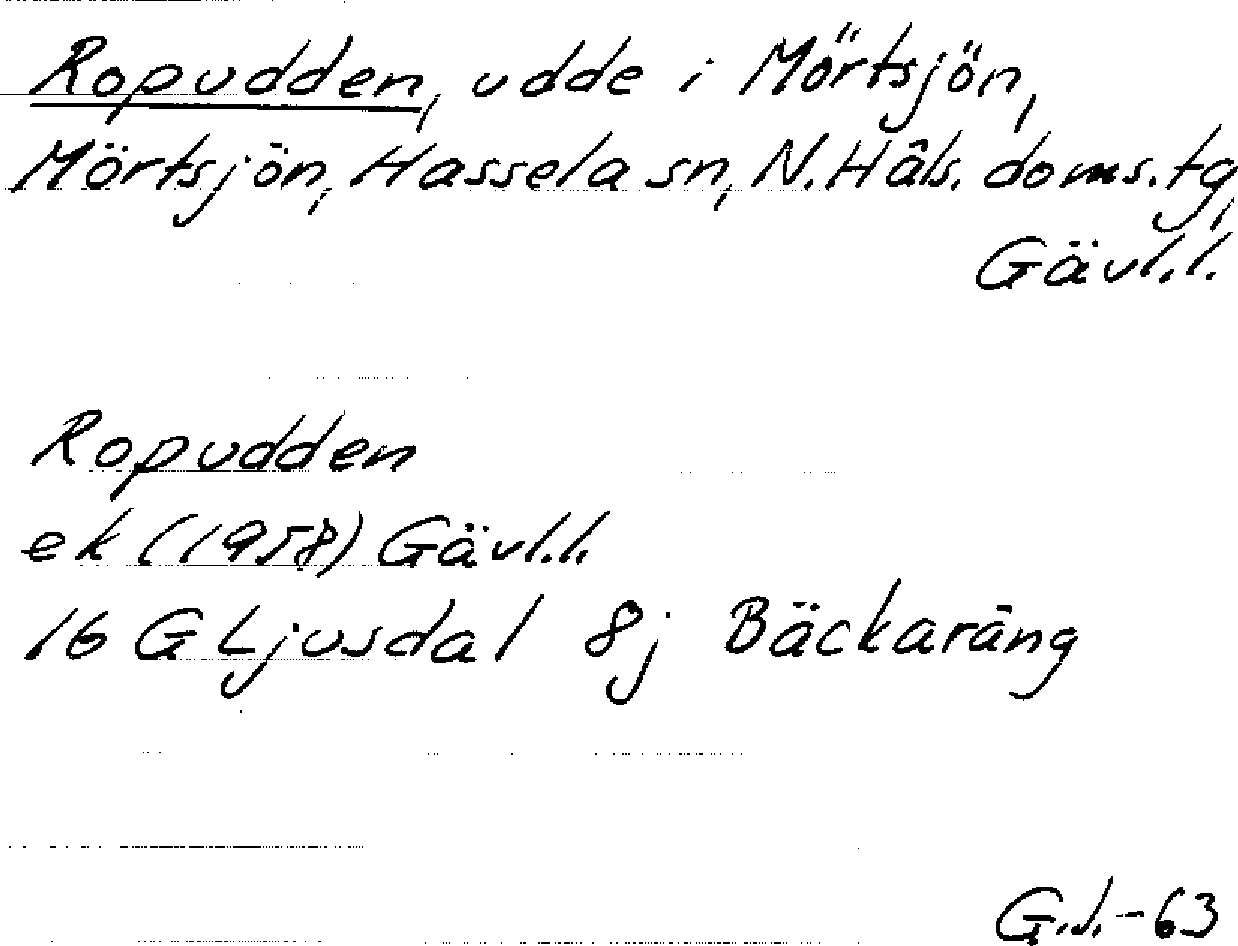 Ropudden, udde i Mörtsjön,
Mörtsjön, Hassela sn, N. Häls. doms.tg,
Gävl.l.
Ropudden
ek (1958) Gävl.l.
16 G Ljusdal 8j Bäckaräng
G.J.-63